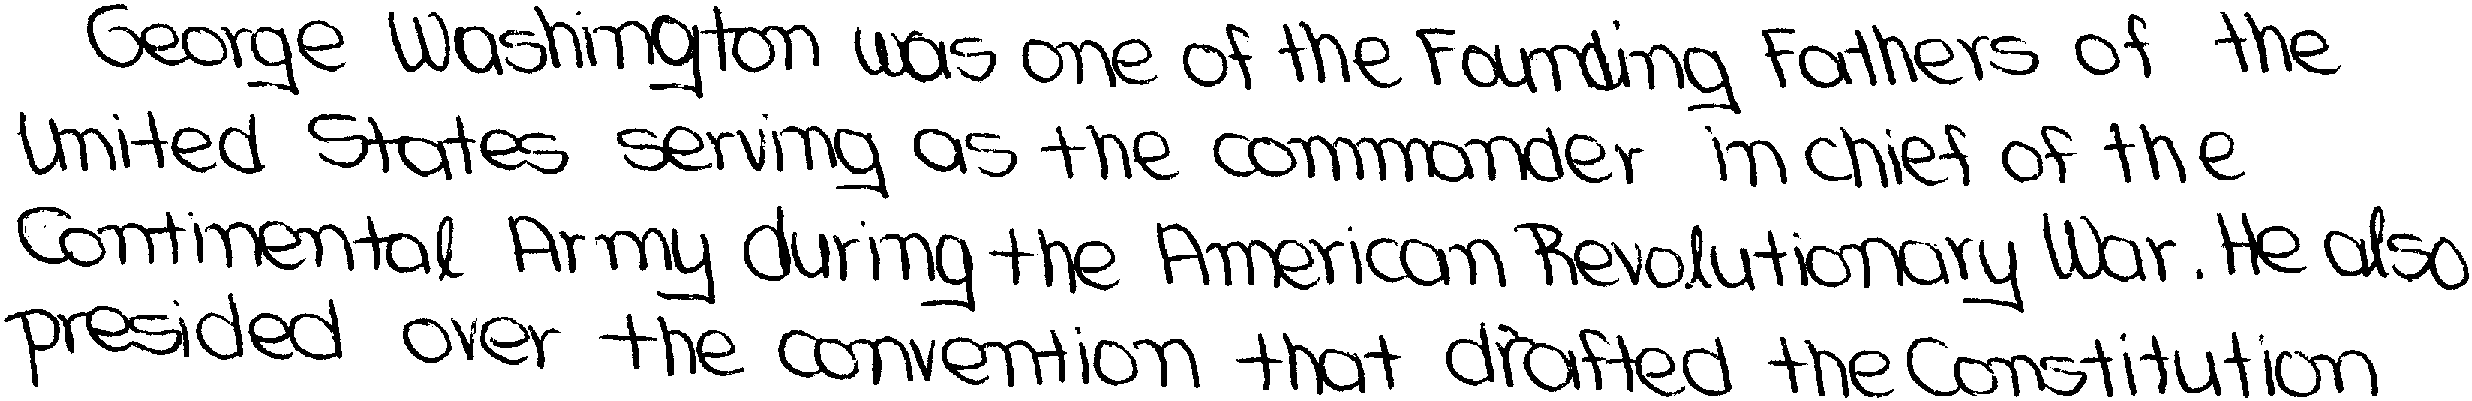 George Washington was one of the Founding Fathers of the
United States serving as the commander in chief of the
Continental Army during the American Revolutionary War. He also
presided over the convention that drafted the Constitution